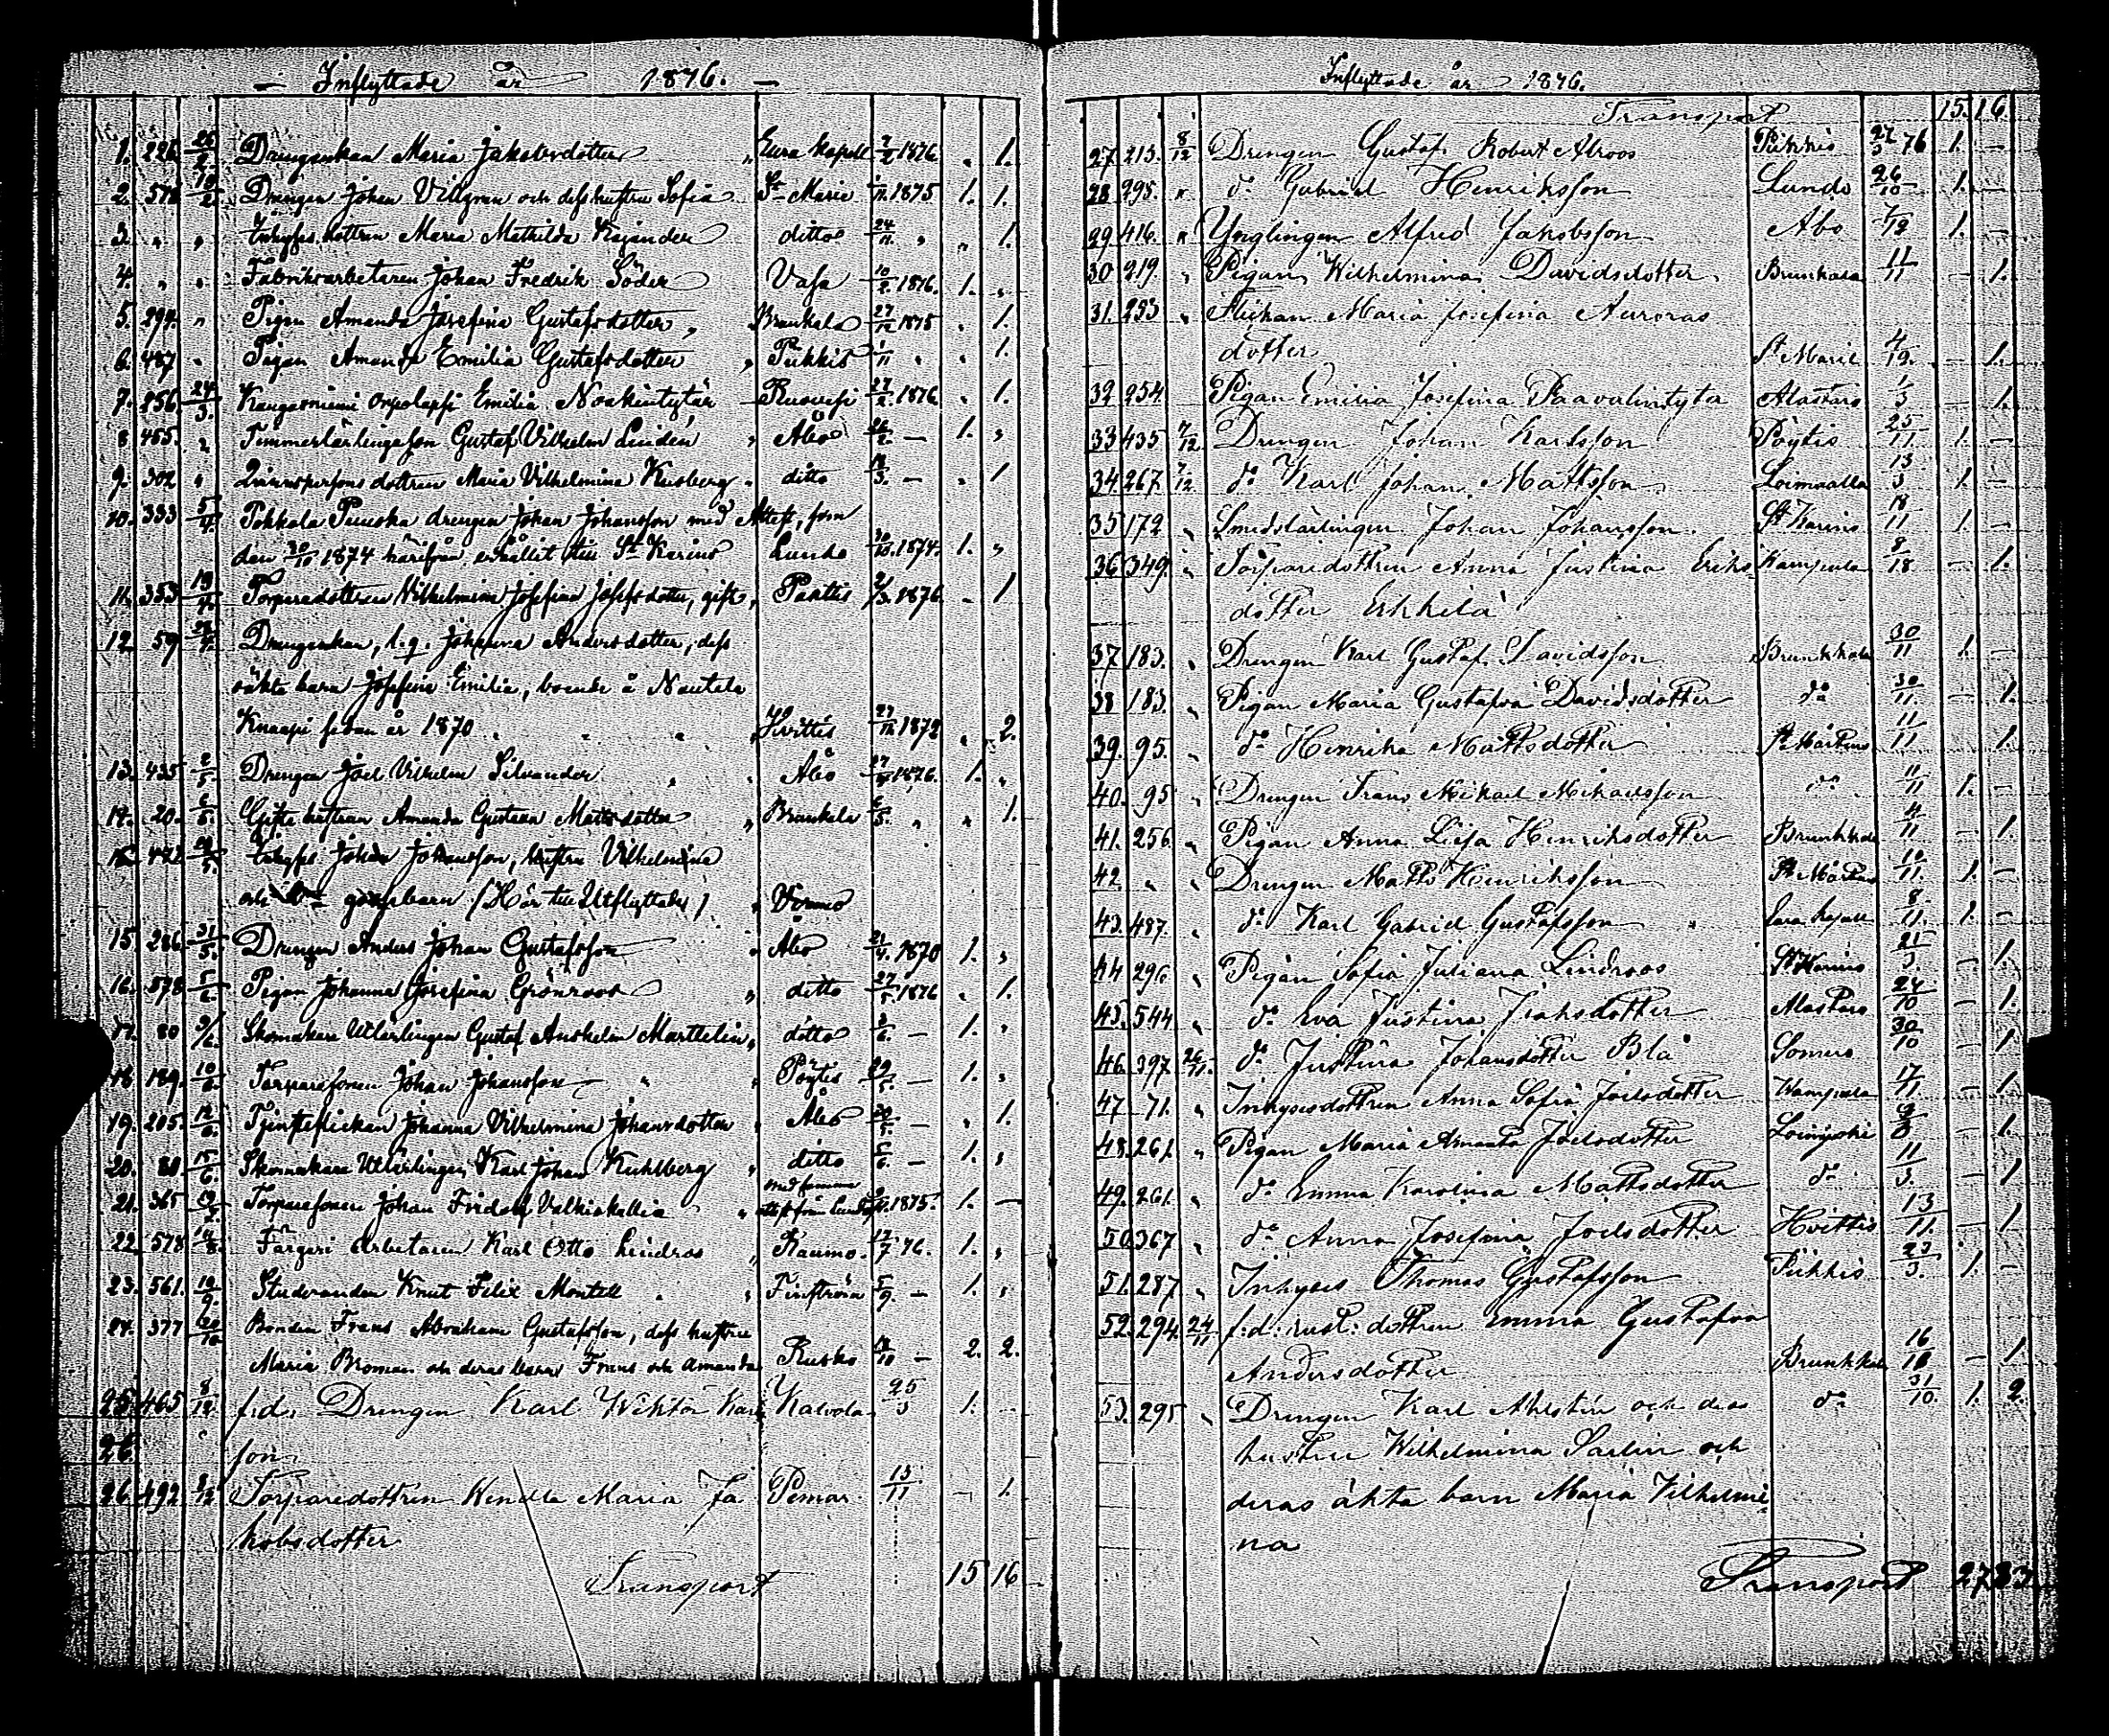 Inflyttade år 1876.
1. 226. Drengenkan Maria Jakobsdotter Eura Kapell 1876. 1.
2. 578 Drengen Johan Villgren och dess hustru Sofia St Marie 1875 1. 1.
3. " " dottren Maria Mathilda Kajander ditto 24/11 " " 1.
4. " " Fabriksarbetaren Johan Fredrik Söder Vasa 10/2 1876. 1. "
5. 294. " Pigan Amanda Josefina Gustafsdotter Brunkala 27/12 1875 " 1.
6. 487 " Pigan Amanda Emilia Gustafsdotter Piikkis 1/11 " " 1.
7. 256. 24/3. Kangasniemi Emilia Noakintytär Ruovesi 27/2 1876 " 1.
8 455. " Gustaf Vilhelm Lindén Åbo 26/2. — 1. "
9. 302 " dottren Maria Vilhelmina ditto — " 1
10. 333 5/4. Pokkala drengen Johan Johansson med Attest, som
den 30/10 1874 härifrån erhållit till St Karins Lundo 30/10. 1874. 1. "
11. 353 19/4. Torparedottren Vilhelmina Josefina Josefsdotter, gift, Paatis 1876. - 1
12 59 Drengenkan, Johanna Andersdotter, dess
oäkta barn Josefina Emilia, boende å Nautela
Knaapi sedan år 1870 Hvittis 1872 " 2.
13. 435 2/5. Drengen Joel Vilhelm Silvander Åbo 1876. 1. "
14. 20. 6/5. Gifta hustrun Amanda Gustava Mattsdotter Brunkala 6/5. " " 1.
Johan Johansson, hustru Vilhelmina
och barn (Hör till Utflyttade)
15 286. 31/5. Drengen Anders Johan Gustafsson Åbo 21/4. 1870 1. "
16. 578 5/6. Pigan Johanna Josefina Grönroos ditto 27/5. 1876 " 1.
17. 80 9/6. Skomakare Utlärlingen Gustaf Anshelm Marttelin, ditto 2/6. — 1. "
18 189. 10/6. Torparesonen Johan Johansson Pöytis 29/5. — 1. "
19. 205. 12/6. Tjensteflickan Johanna Vilhelmina Johansdotter Åbo 20/5. — " 1.
20. 80 15/6. Skomakare Utlärlingen Karl Johan Kuhlberg ditto — 1. "
21. 365 Torparesonen Johan Fridolf med samma attest från 1875. 1. —
22. 578 Färgeri Arbetaren Karl Otto Lindros Raumo. 12/7 76. 1. "
23. 561. 19/9. Studeranden Knut Felix Montell Finström 5/9. — 1. "
24. 377 Bonden Frans Abraham Gustafsson, dess hustru
Maria Broman och deras barn Frans och Amanda Rusko — 2. 2.
25. 465 8/12. f.d. Drengen Karl Wiktor Karls Kalvola 25/3 1. —
26. son
26. 492 8/12 Torparedottren Wendla Maria Ja Pemar 15/11 — 1.
kobsdotter
Transport 15 16
Inflyttade år 1876.
Transport 15. 16.
27 213. 8/12 Drengen Gustaf Robert Alroos Piikkis 76 1. —
28 295. " do Gabriel Henriksson Lundo 26/10 1. —
29 416. " Ynglingen Alfred Jakobsson Åbo 7/12 1. —
30 219. " Pigan Wilhelmina Davidsdotter Brunkala 11/11 — 1.
31. 253 " Flickan Maria Josefina Auroras
dotter St Marie — 1.
32 254. Pigan Emilia Josefina Paavalintytär Alastaro — 1.
33 435 7/12 Drengen Johan Karlsson Pöytis 25/11 1. —
34 267. 7/12 do Karl Johan Mattsson Loimaalla 13/3 1. —
35 172 " Smedslärlingen Johan Johansson St Karins 18/11 1. —
36 349. " Torparedottren Anna Justina Eriks — 1.
dotter Erkkilä
37 183. " Drengen Karl Gustaf Davidsson Brunkkala 30/11 1. —
38 183. " Pigan Maria Gustafva Davidsdotter do 30/11. — 1.
39. 95. " do Henrika Mattsdotter St Mårtens 11/11 1.
40. 95 " Drengen Frans Mikael Mikaelsson do 11/11 1. —
41. 256. " Pigan Anna Liisa Henriksdotter Brunkkala 4/11 — 1.
42. " " Drengen Matts Henriksson St Mårtens 10/11. 1. —
43. 487. " do Karl Gabriel Gustafsson Eura kapell 8/11 1. —
44 296. " Pigan Sofia Juliana Lindroos St Karins — 1.
45. 544 " do Eva Justina Alastaro 24/10 — 1.
46. 397 do Justina Johansdotter Blå Somero 30/10 — 1
47 71. " Inhysesdottren Anna Sofia Joelsdotter 17/11 — 1.
48. 261. " Pigan Maria Amanda Joelsdotter Loimijoki — 1.
49. 261. " do Emma Karolina Mattsdotter do 11/3. — 1
50. 367 " do Anna Josefina Joelsdotter Hvittis 13/11. — 1
51. 287 " Inhyses Thomas Gustafsson Piikkis 23/3. 1. —
52. 294. 24/11 f.d. rust. dottren Emma Gustafva
Andersdotter Brunkkala — 1.
53. 295 " Drengen Karl Ahlstén och dess do 31/10. 1. 2.
hustru Wilhelmina Sarlin och
deras äkta barn Maria Vilhelmi
na
Transport 27 33